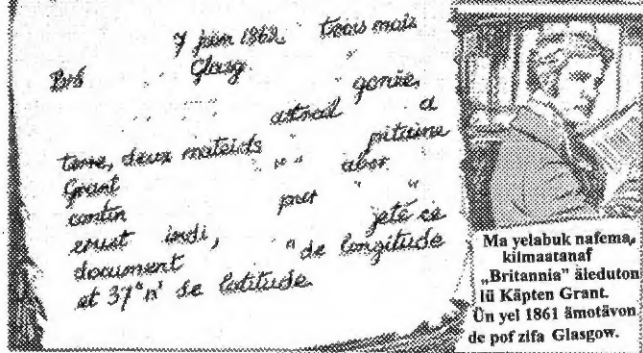 7 juin 1862. trois mais
Brb " " Glasg.
gonie,
austral a
terre, deux mateids pitaine
Grant " " " aber
contin pur " "
cruet indi, jeté ce
document " de longitude
et 37°11' de latitude.
Ma yelabuk nafema,
kilmaatanaf
„Britannia” äleduton
lü Käpten Grant.
Ün yel 1861 ämotävon
de pof zifa Glasgow.